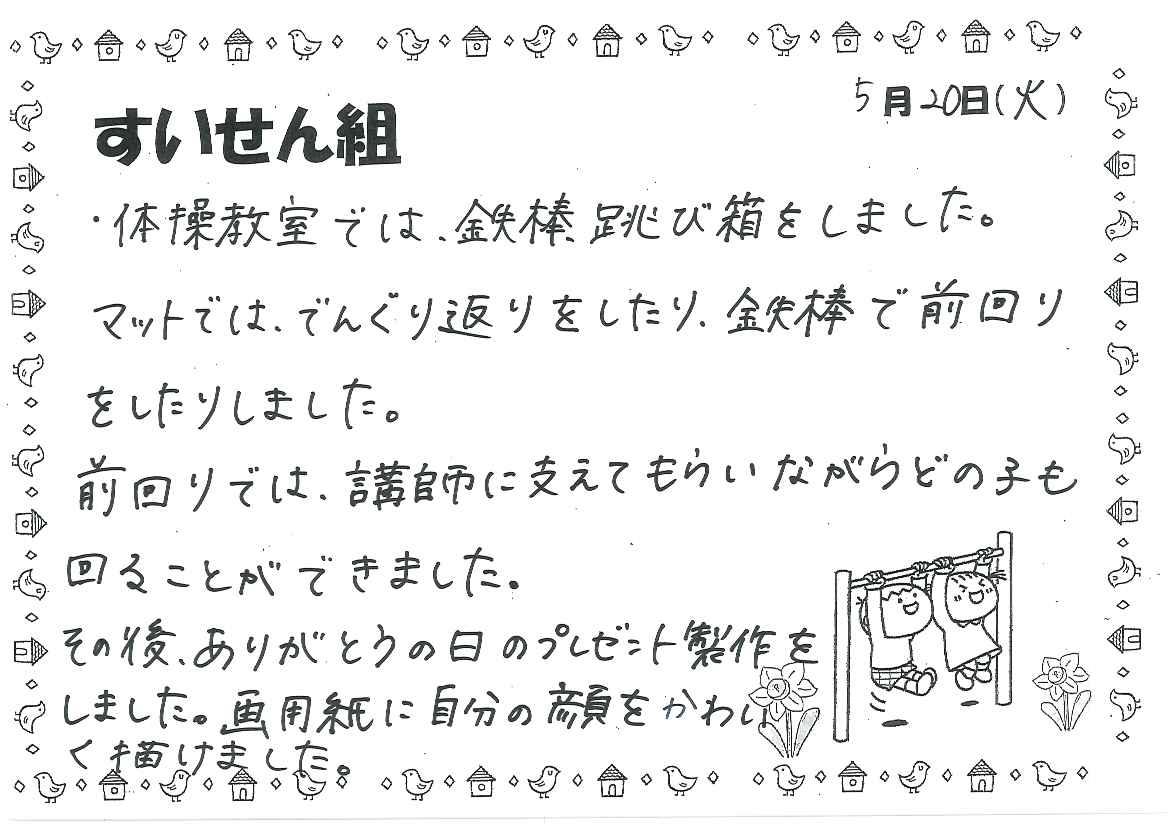 5月20日(火)
すいせん組
・体操教室では、鉄棒、跳び箱をしました。
マットでは、でんぐり返りをしたり、鉄棒で前回り
をしたりしました。
前回りでは、講師に支えてもらいながらどの子も
回ることができました。
その後、ありがとうの日のプレゼント製作を
しました。画用紙に自分の顔をかわい
く描けました。